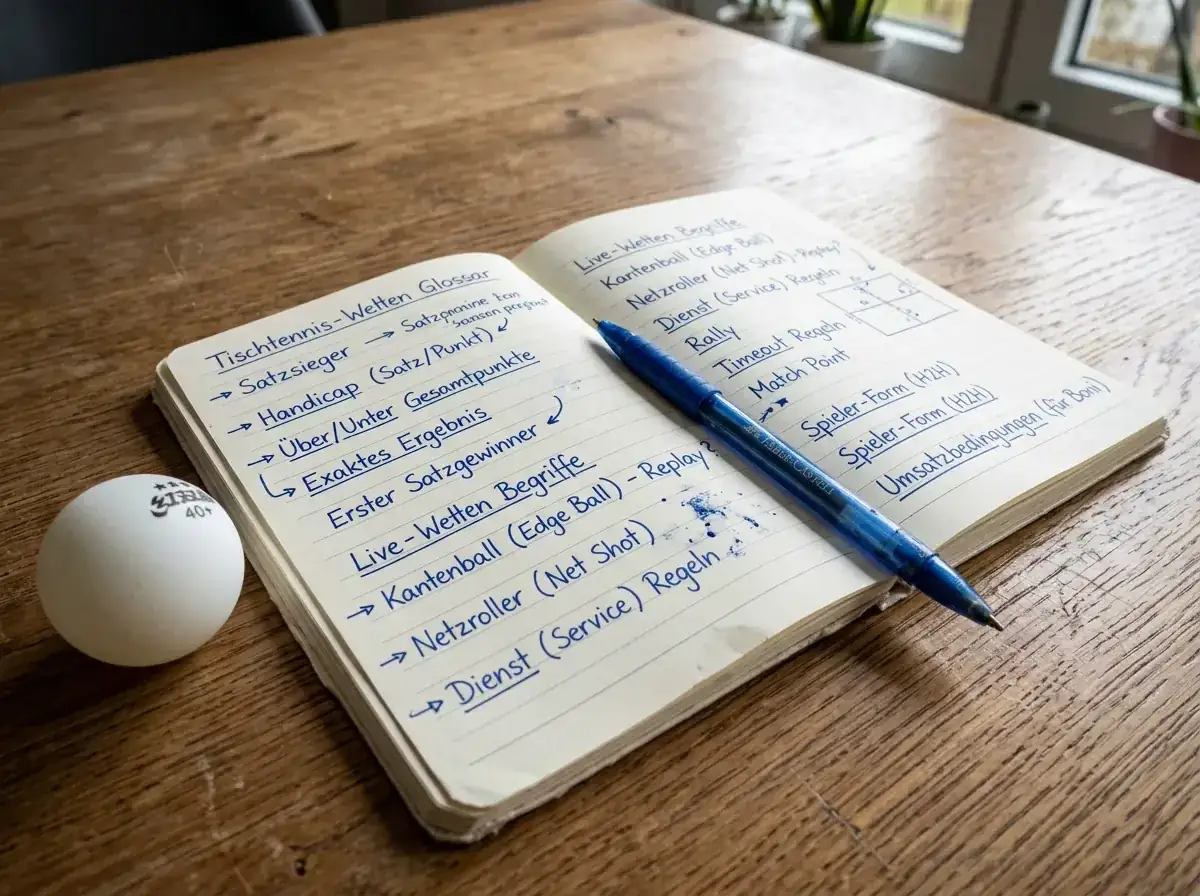 Tischtennis-Wetten Glossar
→ Satzsieger → Satzpramine
→ Handicap (Satz/Punkt)
→ Über/Unter Gesamtpunkte
Exaktes Ergebnis
Erster Satzgewinner
Live-Wetten Begriffe
→ Kantenball (Edge Ball) - Replay?
→ Netzroller (Net Shot)
→ Dienst (Service) Regeln
Live-Wetten Begriffe
Kantenball (Edge Ball)
Netzroller (Net Shot) - Replay?
Dienst (Service) Regeln
Rally
Timeout Regeln
Match Point
Spieler-Form (H2H)
Spieler-Form (H2H)
Umsatzbedingungen (für Boni)
40+